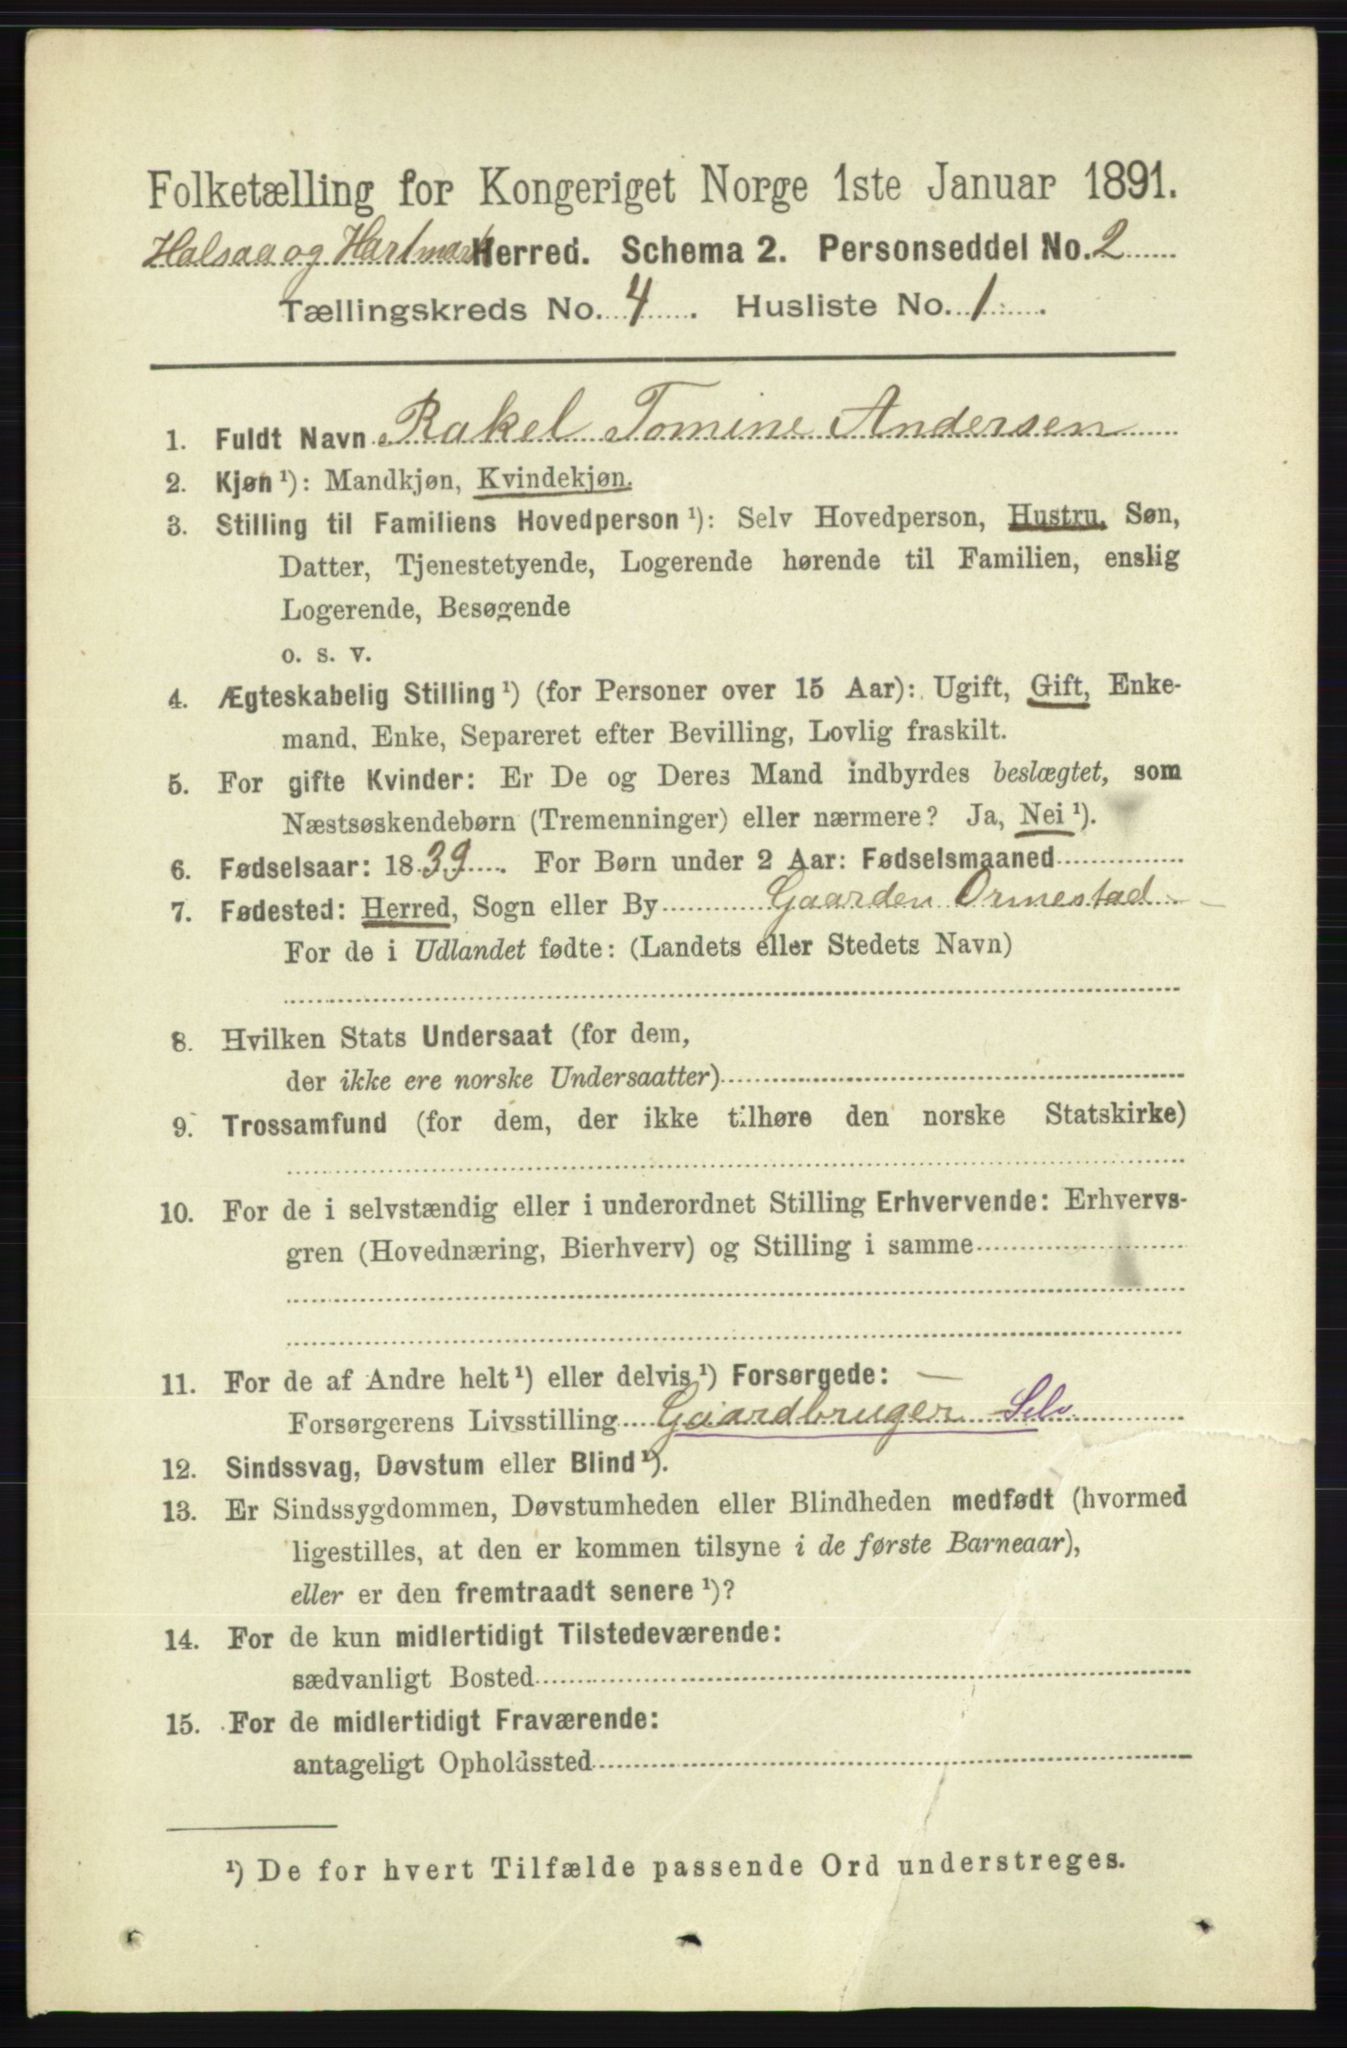 Folketælling for Kongeriget Norge 1ste Januar 1891.
Halsaa og Hartmark Herred. Schema 2. Personseddel No. 2
Tællingskreds No. 4. Husliste No. 1.
1. Fuldt Navn Rakel Tomine Andersen
2. Kjøn ¹): Mandkjøn, Kvindekjøn.
3. Stilling til Familiens Hovedperson ¹): Selv Hovedperson, Hustru, Søn,
Datter, Tjenestetyende, Logerende hørende til Familien, enslig
Logerende, Besøgende
o. s. v.
4. Ægteskabelig Stilling ¹) (for Personer over 15 Aar): Ugift, Gift, Enke-
mand, Enke, Separeret efter Bevilling, Lovlig fraskilt.
5. For gifte Kvinder: Er De og Deres Mand indbyrdes beslægtet, som
Næstsøskendebørn (Tremenninger) eller nærmere? Ja, Nei ¹).
6. Fødselsaar: 1839. For Børn under 2 Aar: Fødselsmaaned
7. Fødested: Herred, Sogn eller By Gaarden Ormestad
For de i Udlandet fødte: (Landets eller Stedets Navn)
8. Hvilken Stats Undersaat (for dem,
der ikke ere norske Undersaatter)
9. Trossamfund (for dem, der ikke tilhøre den norske Statskirke)
10. For de i selvstændig eller i underordnet Stilling Erhvervende: Erhvervs-
gren (Hovednæring, Bierhverv) og Stilling i samme
11. For de af Andre helt ¹) eller delvis ¹) Forsørgede: —
Forsørgerens Livsstilling Gaardbruger Selv
12. Sindssvag, Døvstum eller Blind ¹).
13. Er Sindssygdommen, Døvstumheden eller Blindheden medfødt (hvormed
ligestilles, at den er kommen tilsyne i de første Barneaar),
eller er den fremtraadt senere ¹)?
14. For de kun midlertidigt Tilstedeværende:
sædvanligt Bosted
15. For de midlertidigt Fraværende:
antageligt Opholdssted
¹) De for hvert Tilfælde passende Ord understreges.